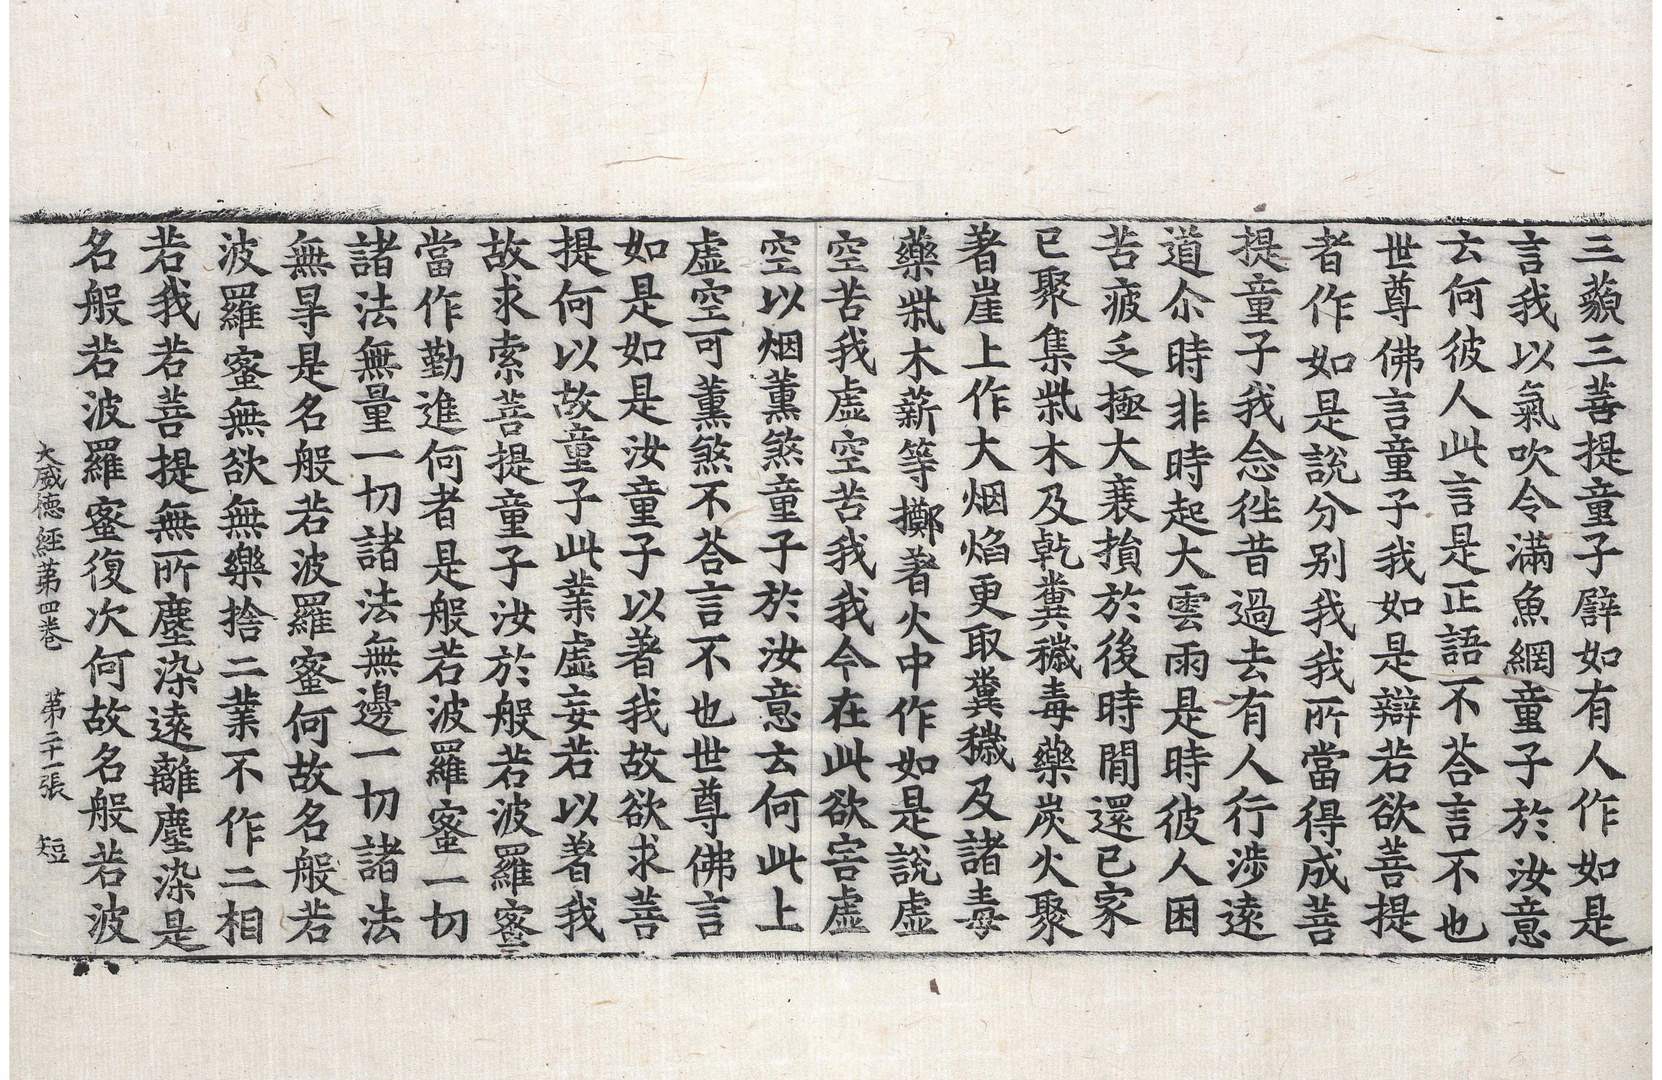 三藐三菩提童子譬如有人作如是
言我以氣吹令滿魚網童子於汝意
云何彼人此言是正語不荅言不也
世尊佛言童子我如是辯若欲菩提
者作如是說分别我我所當得成菩
提童子我念徃昔過去有人行涉遠
道尒時非時起大雲雨是時彼人困
苦疲乏極大衰損於後時閒還已家
已聚集柴木及乾糞穢毒藥炭火聚
著崖上作大烟焰更取糞穢及諸毒
藥柴木薪等擲著火中作如是說虛
空苦我虛空苦我我今在此欲害虛
空以烟薰煞童子於汝意云何此上
虛空可薰煞不荅言不也世尊佛言
如是如是汝童子以著我故欲求菩
提何以故童子此業虛妄若以著我
故求索菩提童子汝於般若波羅蜜
當作勤進何者是般若波羅蜜一切
諸法無量一切諸法無邊一切諸法
無㝵是名般若波羅蜜何故名般若
波羅蜜無欲無樂捨二業不作二相
若我若菩提無所塵染遠離塵染是
名般若波羅蜜復次何故名般若波
大威德經第四卷 第二十一張 短